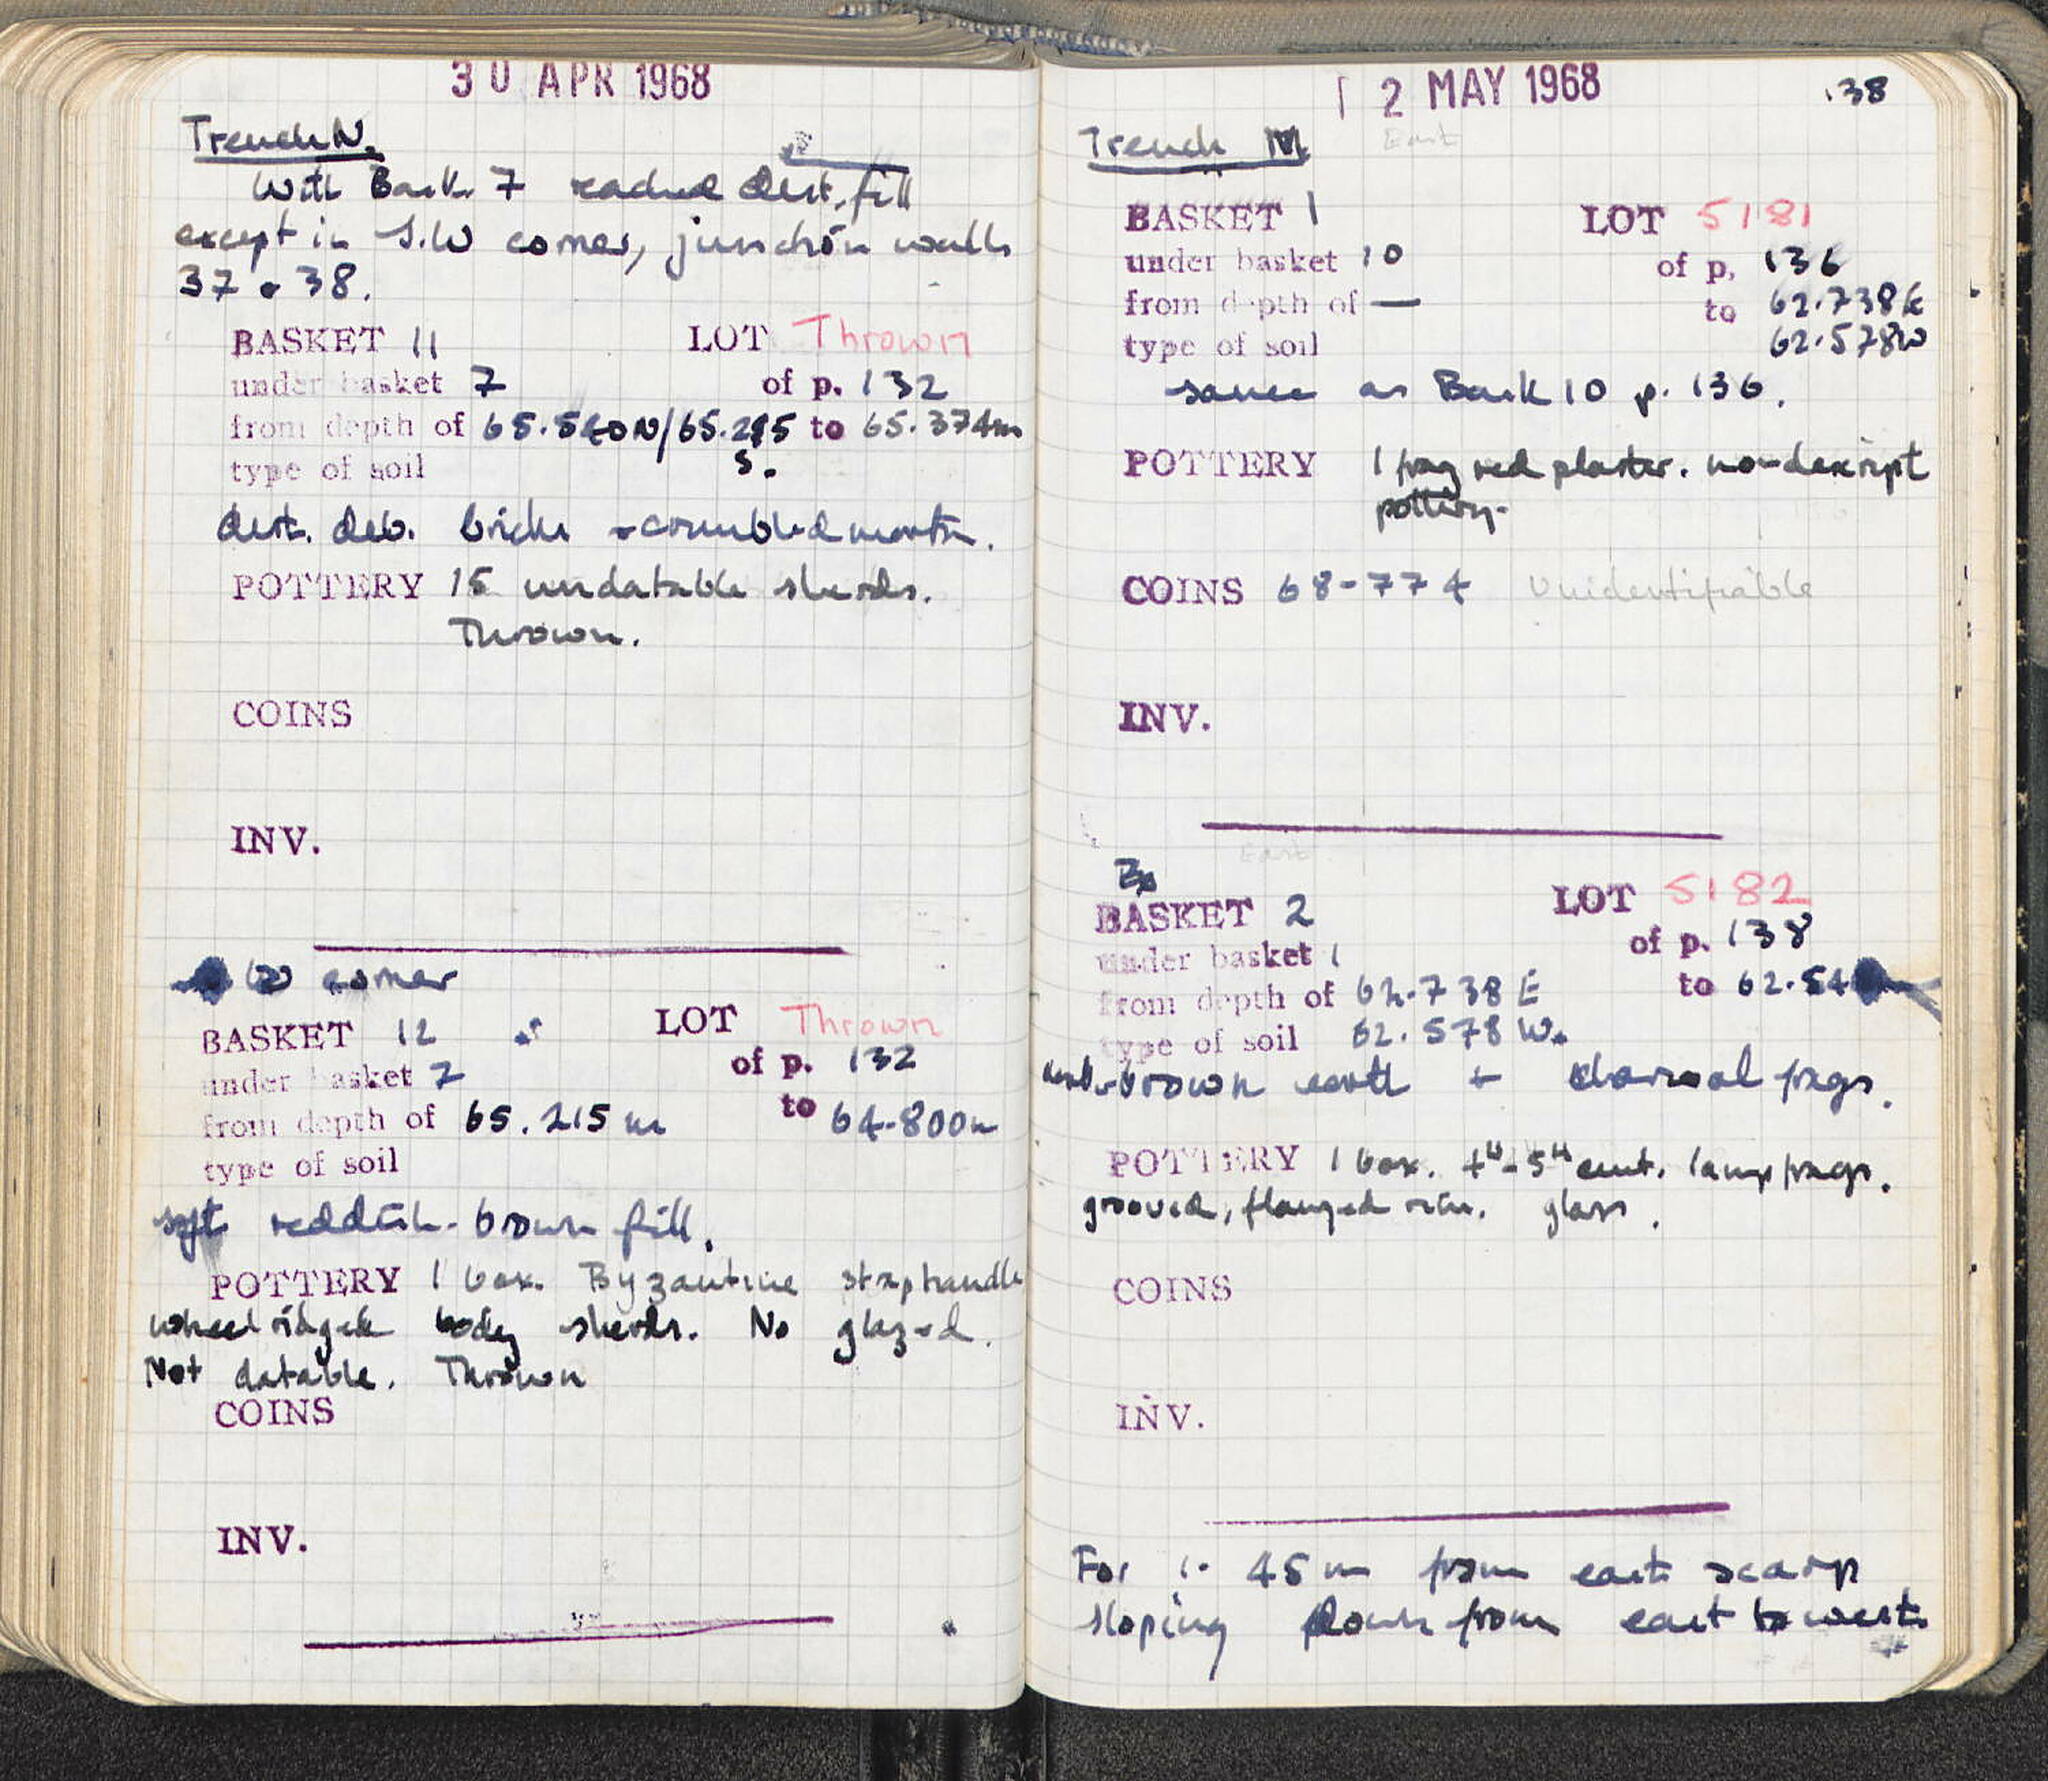 30 APR 1968
Trench N.
With Bask. 7 reached dest. fill
except in S.W corner, junction walls
37 + 38.
BASKET 11 LOT Thrown
under basket 7 of p. 132
from depth of 65.540N/65.215 to 65.374m
S.
type of soil
dest. deb. bricks + crumbled mortar.
POTTERY 15 undatable sherds.
Thrown.
COINS
INV.
W corner
BASKET 12 LOT Thrown
under basket 7 of p. 132
from depth of 65.215m to 64.800m
type of soil
soft reddish-brown fill.
POTTERY 1 box. Byzantine strap handle
wheel ridged body sherds. No glazed.
Not datable. Thrown
COINS
INV.
2 MAY 1968 138
Trench M East
BASKET 1 LOT 5181
under basket 10 of p. 136
from depth of — to 62.738E
type of soil 62.578W
same as Bask 10 p. 136.
POTTERY 1 frag red plaster. nondescript
pottery.
COINS 68-774 Unidentifiable
INV.
East
BASKET 2 LOT 5182
under basket 1 of p. 138
from depth of 62.738E to 62.54
type of soil 62.578W.
brown earth + charcoal frags.
POTTERY 1 box. 4th-5th cent. lamp frags.
grooved, flanged rim. glass.
COINS
INV.
For 1.45m from east scarp
sloping down from east to west